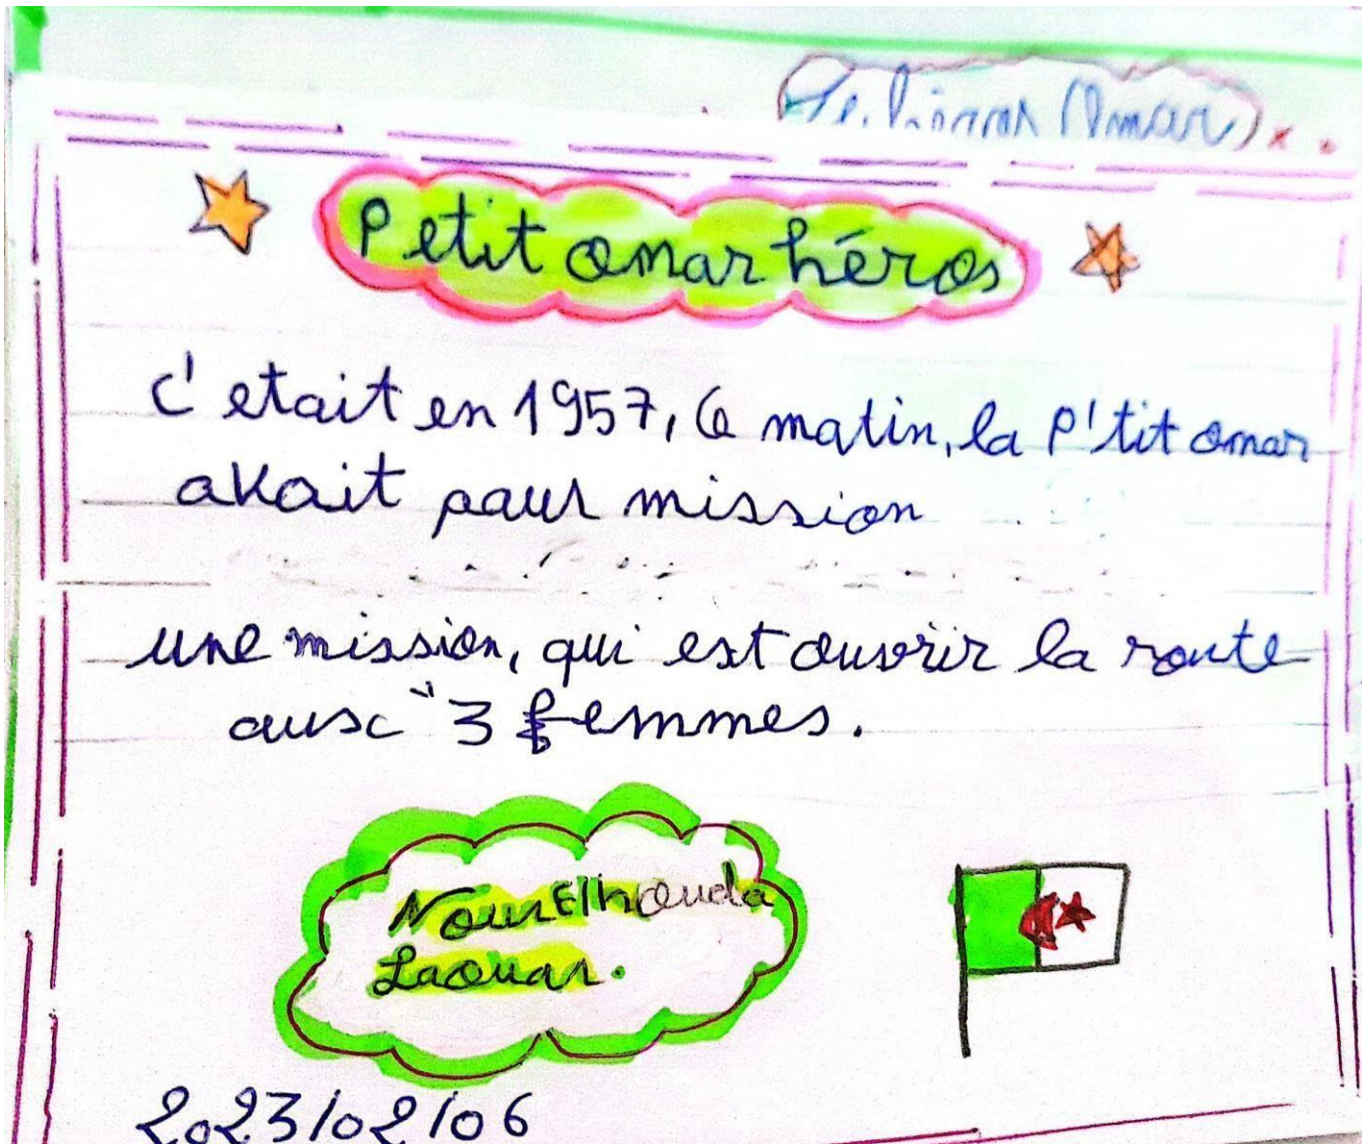 Omar
Petit omar héros
c'etait en 1957, Ce matin, la P'tit omar
avait pour mission
une mission, qui est ouvrir la route
aux 3 femmes.
Nour Elhouda
Laouar.
2023/02/06